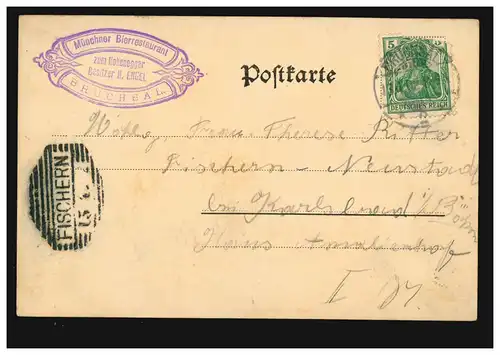 Münchner Bierrestaurant
zum Hohenegger
Besitzer H. ENGEL
BRUCHSAL
Postkarte
5
DEUTSCHES REICH
FISCHERN
Frau Therese Ritter
Fischern - Neustadt
bei Karlsbad
Haus